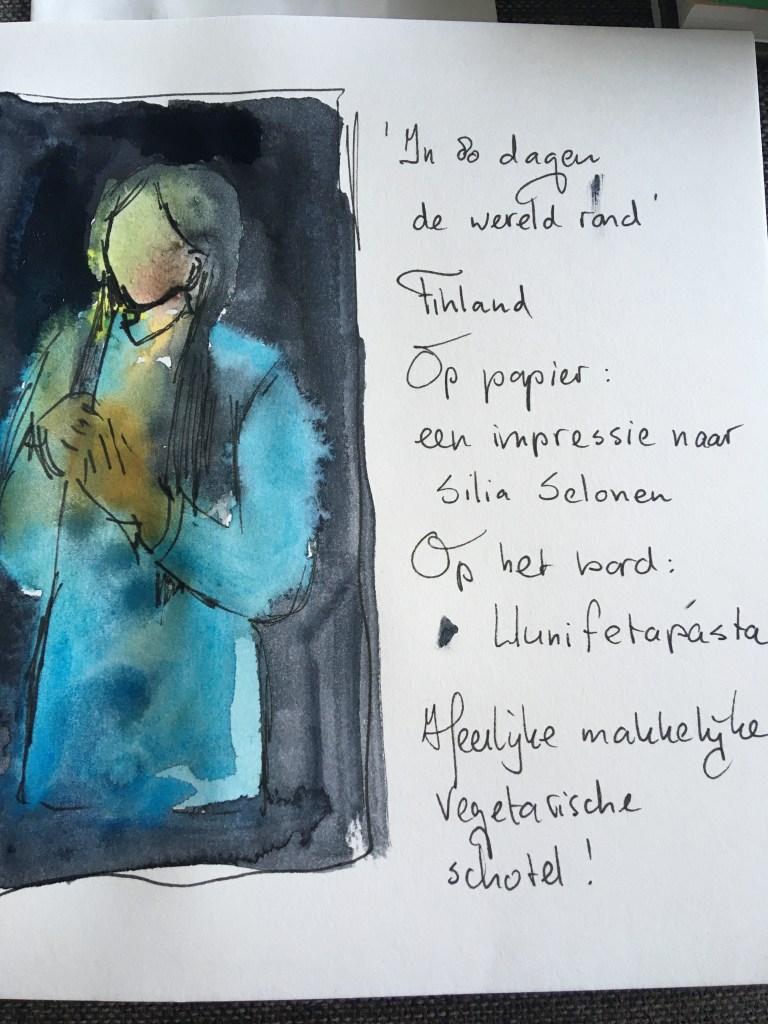 'In 80 dagen
de wereld rond'
Finland
Op papier:
een impressie naar
Silia Selonen
Op het bord:
Uunifetapasta
Heerlijke makkelijke
vegetarische
schotel!